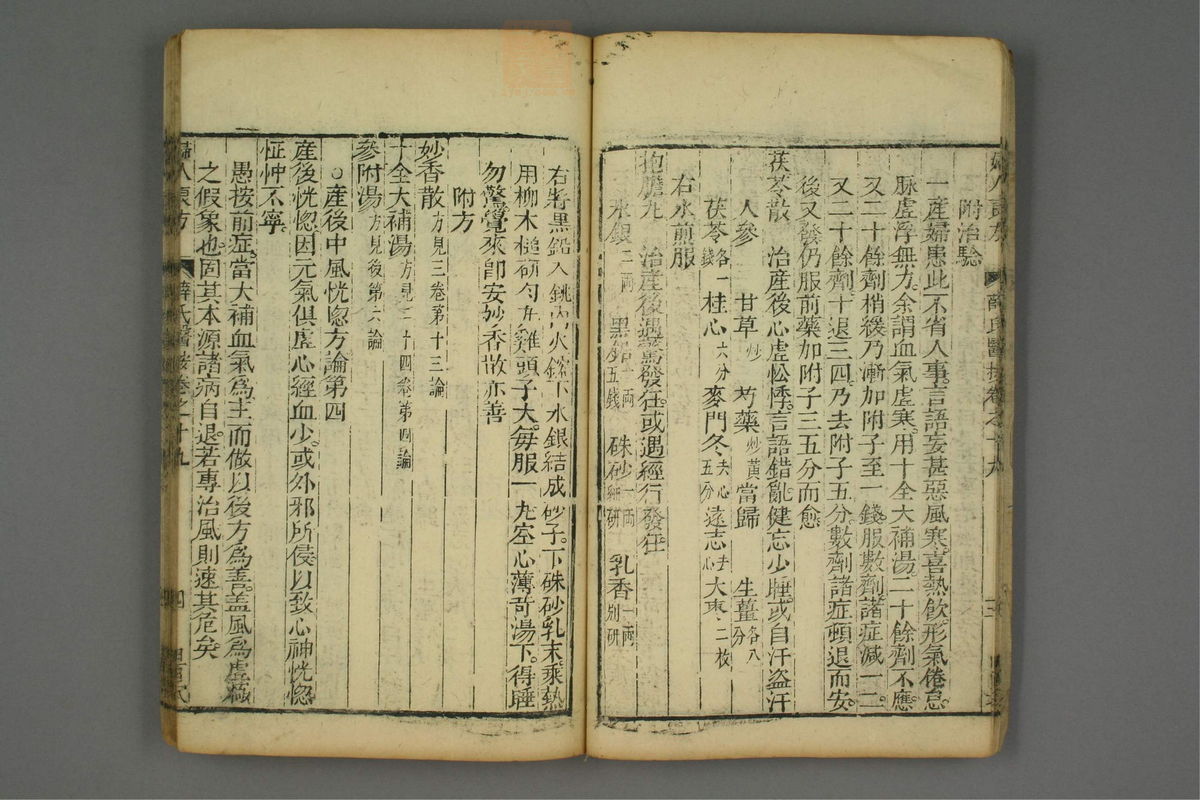 婦人良方 薛氏醫按卷之十九
附治驗
一產婦患此不省人事言語妄甚惡風寒喜熱飲形氣倦怠
脉虛浮無力余謂血氣虛寒用十全大補湯二十餘劑不應
又二十餘劑稍緩乃漸加附子至一錢服數劑諸症減一二
又二十餘劑十退三四乃去附子五分數劑諸症頓退而安
後又發仍服前藥加附子三五分而愈
茯苓散 治產後心虛忪悸言語錯亂健忘少睡或自汗盜汗
人參 甘草炒 芍藥炒黃 當歸 生薑各八分
茯苓各一錢 桂心六分 麥門冬去心五分 遠志去心 大棗二枚
右水煎服
抱膽丸 治產後遇驚發狂或遇經行發狂
水銀二兩 黑鉛一兩五錢 硃砂一兩細研 乳香一兩別研
右將黑鉛入銚內火鎔下水銀結成砂子下硃砂乳末乘熱
用柳木槌研勻丸雞頭子大每服一丸空心薄荷湯下得睡
勿驚覺來即安妙香散亦善
附方
妙香散方見三卷第十三論
十全大補湯方見二十四卷第四論
參附湯方見後第六論
○產後中風恍惚方論第四
產後恍惚因元氣俱虛心經血少或外邪所侵以致心神恍惚
怔忡不寧
愚按前症當大補血氣為主而做以後方為善蓋風為虛極
之假象也固其本源諸病自退若專治風則速其危矣
婦人良方 薛氏醫按卷之十九 四